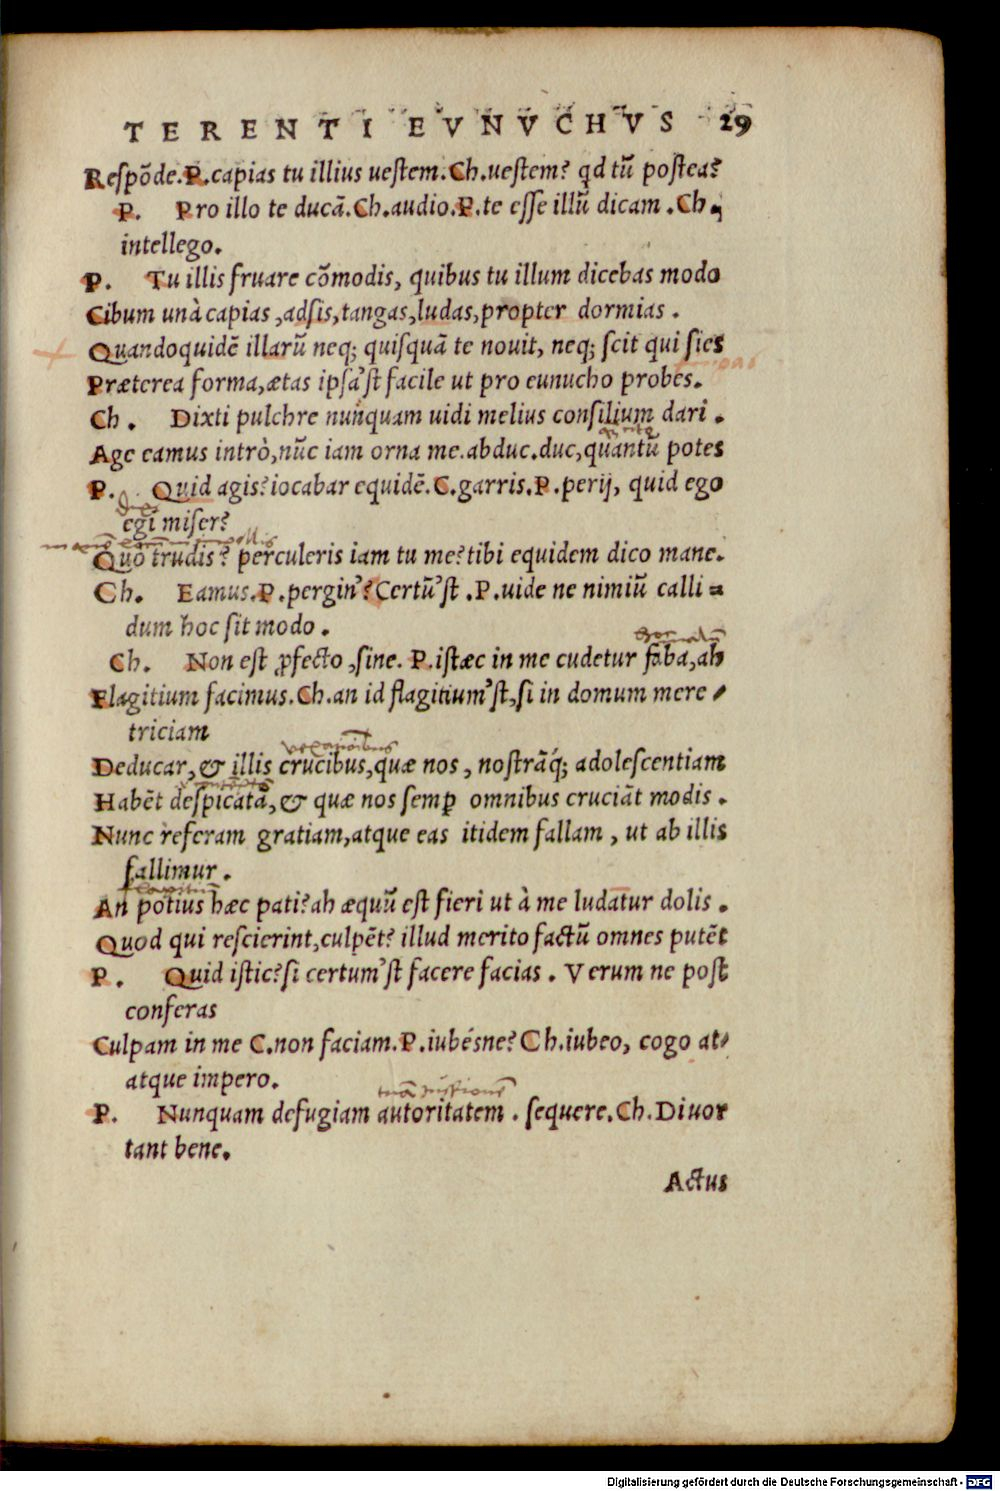 TERENTI EVNVCHVS 29
Respōde.P.capias tu illius uestem.Ch.uestem? qd tū postea?
P. Pro illo te ducā.Ch.audio.P.te esse illū dicam.Ch.
intellego.
P. Tu illis fruare cōmodis, quibus tu illum dicebas modo
Cibum unà capias,adsis,tangas,ludas,propter dormias.
Quandoquidē illarū neq; quisquā te nouit, neq; scit qui sies
Præterea forma,ætas ipsa'st facile ut pro eunucho probes.
Ch. Dixti pulchre nunquam uidi melius consilium dari.
Age eamus intrò,nūc iam orna me.abduc.duc,quantū potes
P. Quid agis?iocabar equidē.C.garris.P.perij, quid ego
egi miser?
Quo trudis? perculeris iam tu me?tibi equidem dico mane.
Ch. Eamus.P.pergin'?Certū'st.P.uide ne nimiū calli=
dum hoc sit modo.
Ch. Non est ꝓfecto,sine. P.istæc in me cudetur faba,ah
Flagitium facimus.Ch.an id flagitium'st,si in domum mere-
triciam
Deducar,& illis crucibus,quæ nos, nostrāq; adolescentiam
Habēt despicatā,& quæ nos semꝑ omnibus cruciāt modis.
Nunc referam gratiam,atque eas itidem fallam, ut ab illis
fallimur.
An potius hæc pati?ah æquū est fieri ut à me ludatur dolis.
Quod qui rescierint,culpēt? illud merito factū omnes putēt
P. Quid istic?si certum'st facere facias. Verum ne post
conferas
Culpam in me C.non faciam.P.iubésne? Ch.iubeo, cogo at-
atque impero.
tuā iussionē
P. Nunquam defugiam autoritatem. sequere.Ch.Diuor
tant bene.
Actus
Digitalisierung gefördert durch die Deutsche Forschungsgemeinschaft - DFG